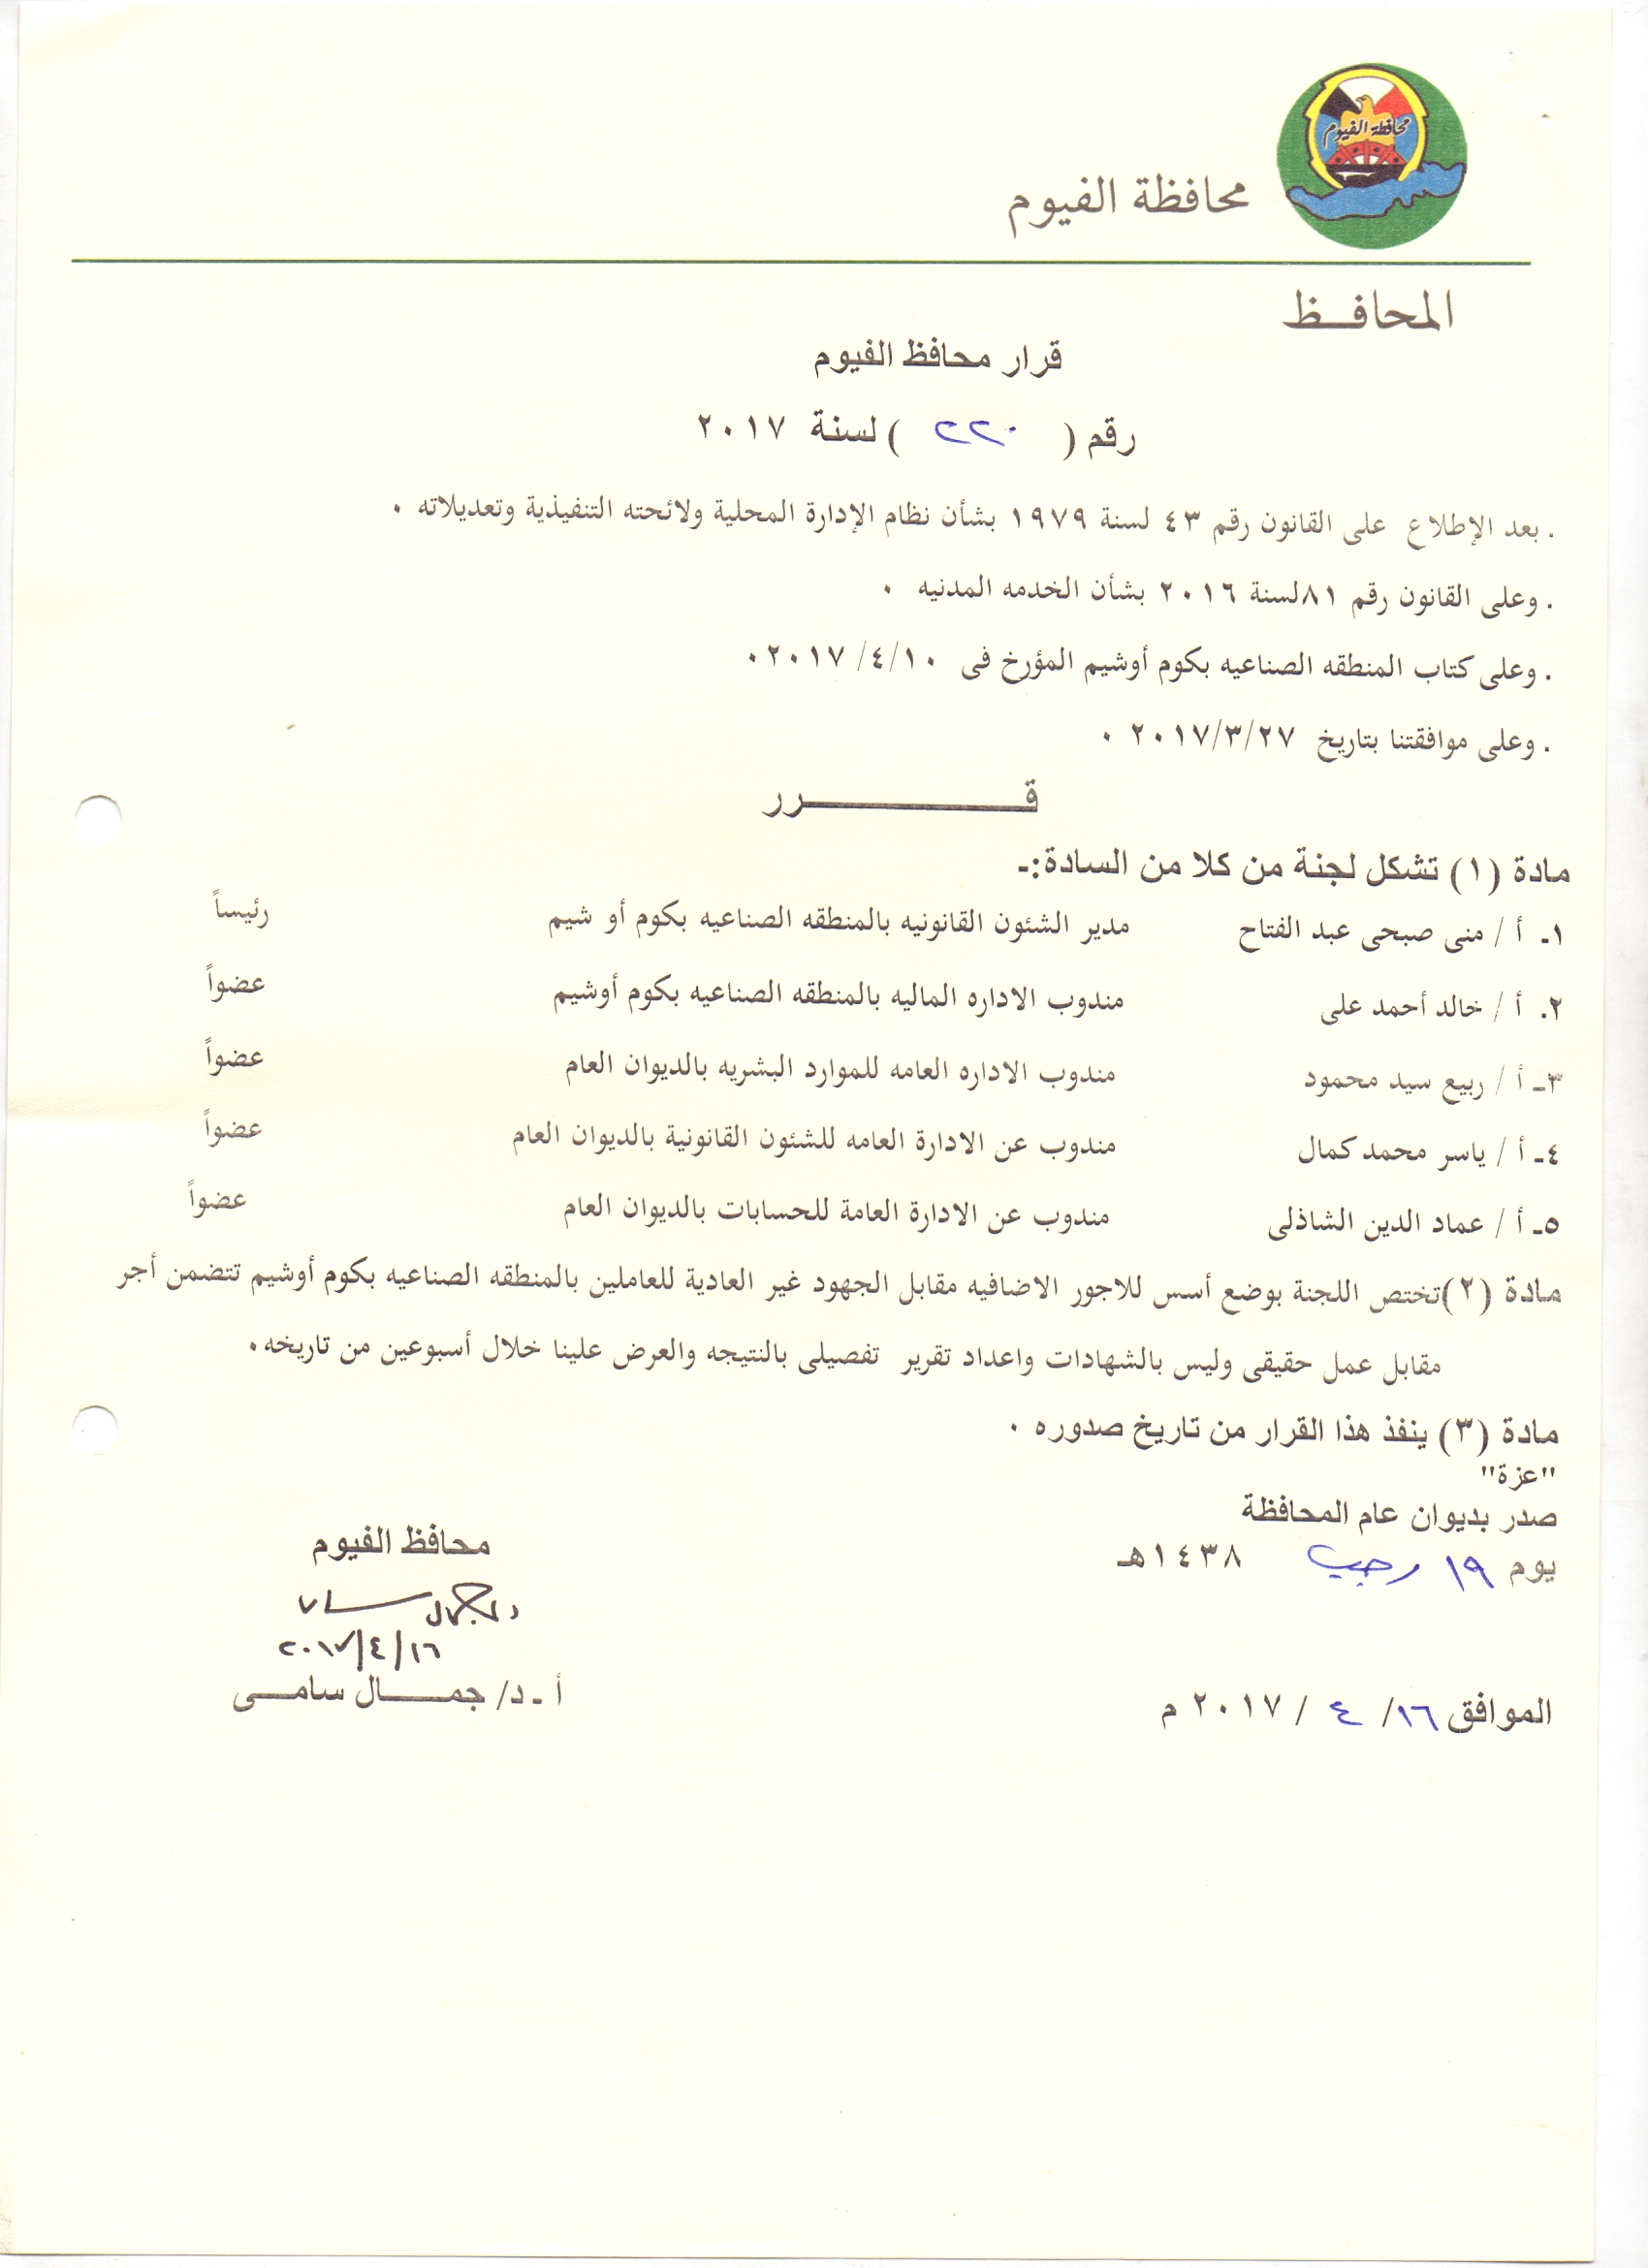 محافظة الفيوم
محافظة الفيوم
المحافـــظ
قرار محافظ الفيوم
رقم ( ٢٢٠ ) لسنة ٢٠١٧
. بعد الإطلاع على القانون رقم ٤٣ لسنة ١٩٧٩ بشأن نظام الإدارة المحلية ولائحته التنفيذية وتعديلاته ٠
. وعلى القانون رقم ٨١لسنة ٢٠١٦ بشأن الخدمه المدنيه ٠
. وعلى كتاب المنطقه الصناعيه بكوم أوشيم المؤرخ فى ٢٠١٧/٤/١٠٠
. وعلى موافقتنا بتاريخ ٢٠١٧/٣/٢٧ ٠
قـــــــــــــــــرر
مادة (١) تشكل لجنة من كلا من السادة:ـ
١ـ أ / منى صبحى عبد الفتاح مدير الشئون القانونيه بالمنطقه الصناعيه بكوم أو شيم رئيساً
٢. أ / خالد أحمد على مندوب الاداره الماليه بالمنطقه الصناعيه بكوم أوشيم عضواً
٣ـ أ / ربيع سيد محمود مندوب الاداره العامه للموارد البشريه بالديوان العام عضواً
٤ـ أ / ياسر محمد كمال مندوب عن الادارة العامه للشئون القانونية بالديوان العام عضواً
٥ـ أ / عماد الدين الشاذلى مندوب عن الادارة العامة للحسابات بالديوان العام عضواً
مادة (٢)تختص اللجنة بوضع أسس للاجور الاضافيه مقابل الجهود غير العادية للعاملين بالمنطقه الصناعيه بكوم أوشيم تتضمن أجر
مقابل عمل حقيقى وليس بالشهادات واعداد تقرير تفصيلى بالنتيجه والعرض علينا خلال أسبوعين من تاريخه٠
مادة (٣) ينفذ هذا القرار من تاريخ صدوره ٠
"عزة"
صدر بديوان عام المحافظة
يوم ١٩ رجب ١٤٣٨هـ
الموافق ١٦/ ٤ / ٢٠١٧ م
محافظ الفيوم
٢٠١٧/٤/١٦
أ ـ د/ جمـــــال سامـــى